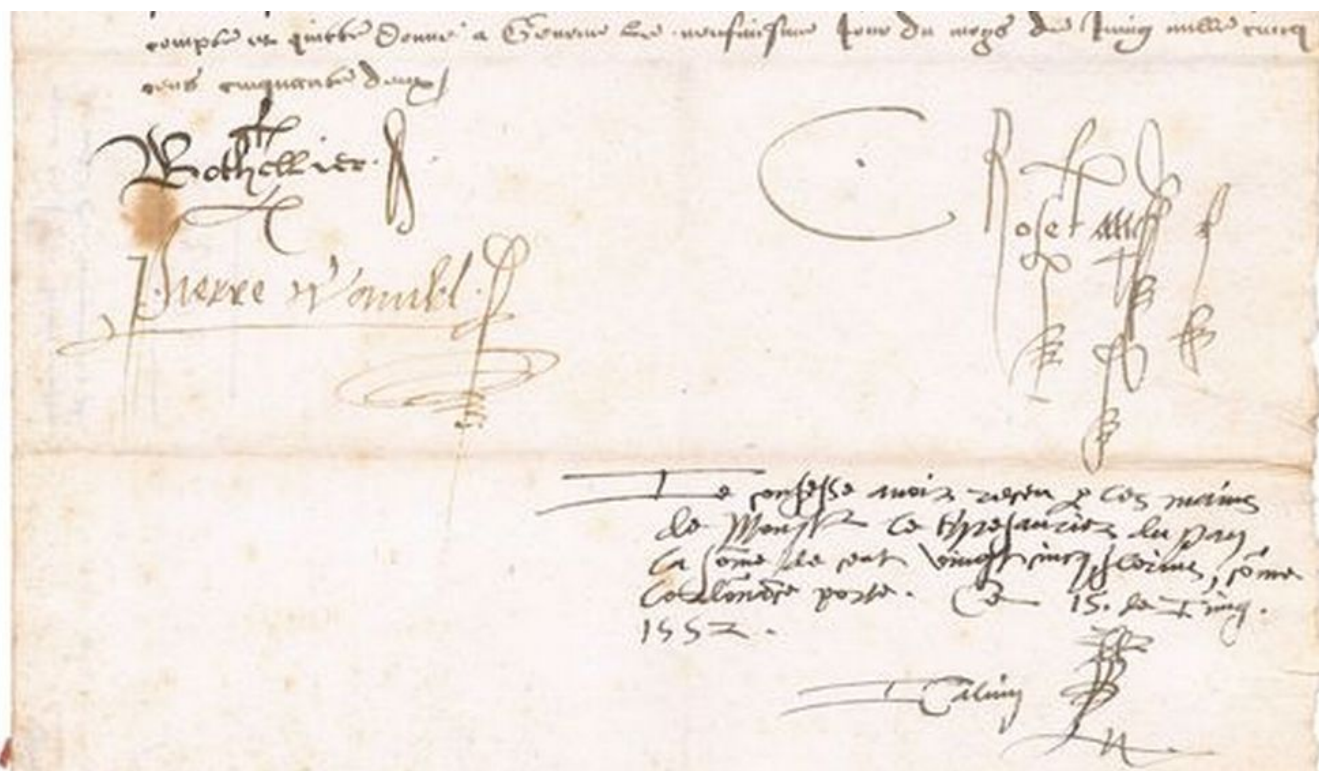 compte et quicte Donne a Geneve Le neufuiesme Jour du moys de Juing mille cincq
cens cinquante deux
Rothellier
Pierre
C Roset
Je confesse avoir receu p les mains
de Mons.r le thresaurier du pay
la sõme de cent vingt cinq florins, cõme
porte. Ce 15. de Juing.
1552.
J Calvin